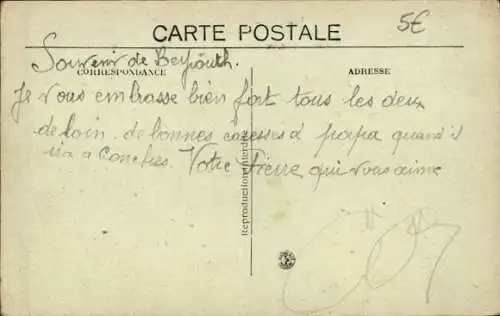 CARTE POSTALE
5€
Souvenir de Beyrouth.
CORRESPONDANCE
ADRESSE
Je vous embrasse bien fort tous les deux
de loin. de bonnes caresses à papa quand il
ira a Votre Pierre qui vous aime
Reproduction interdite